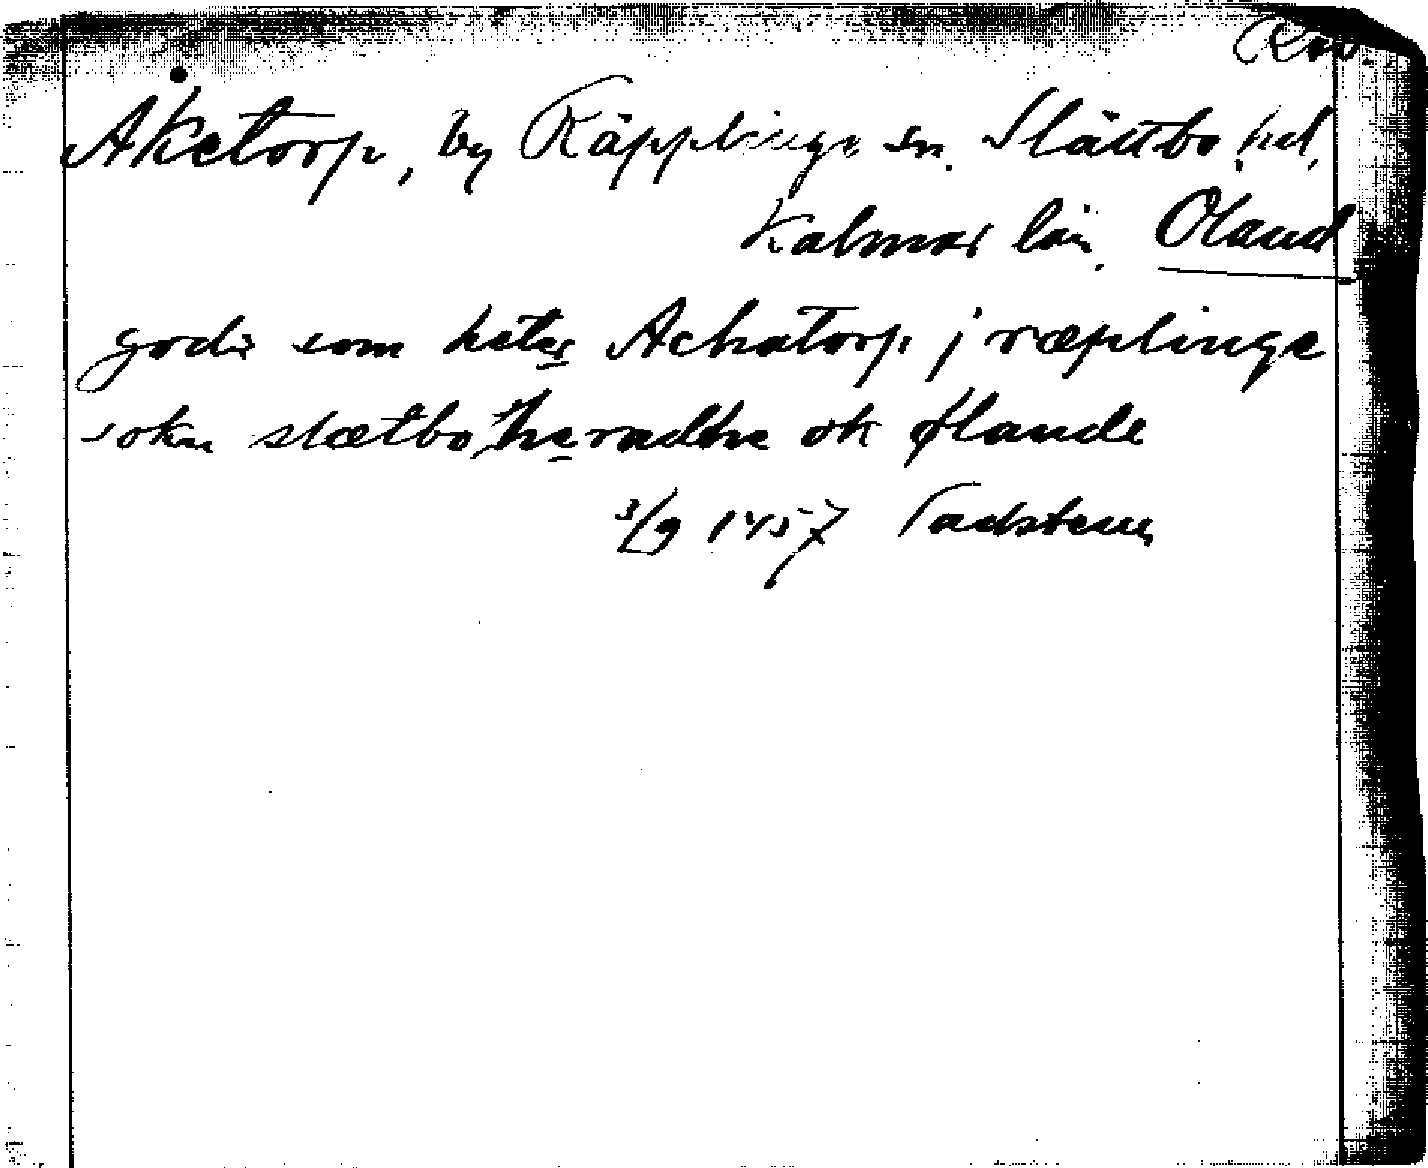 Åketorp, by Räpplinge sn. Slättbo hd,
Kalmar län. Öland
gods som heter Achatorp j ræplinge
sokn slætbo heradhe ok Ølande
3/9 1457 Vadstena